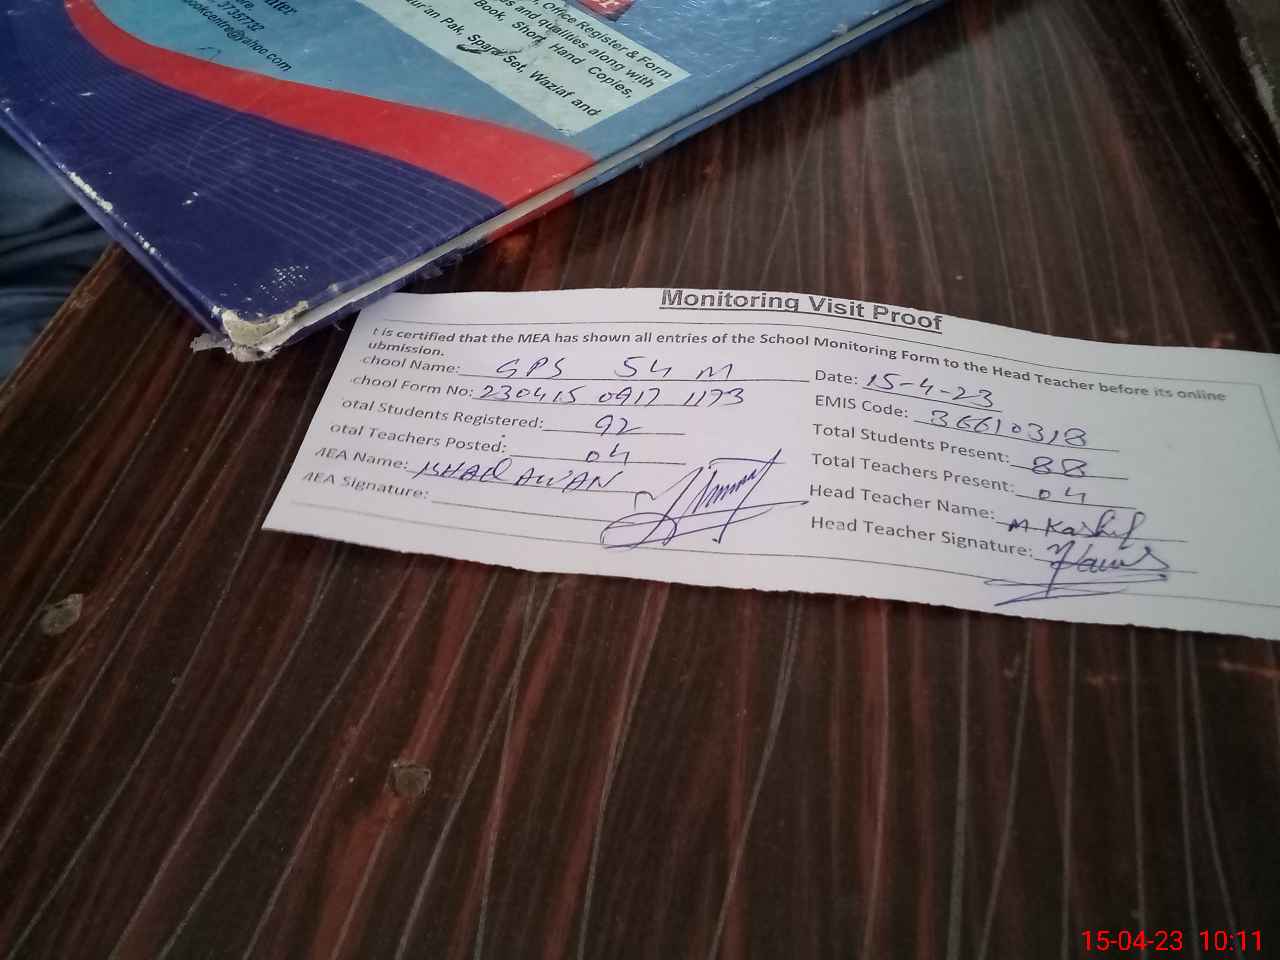 nter
are,
3735732
ookcentre@yahoo.com
, Office Register & Form
s and qualities along with
Book, Short Hand Copies,
ur'an Pak, Spara Set, Waziaf and
Monitoring Visit Proof
t is certified that the MEA has shown all entries of the School Monitoring Form to the Head Teacher before its online
ubmission.
chool Name: GPS 54 M
Date: 15-4-23
chool Form No: 230415 0917 1173
EMIS Code: 36610318
otal Students Registered: 92
Total Students Present: 88
otal Teachers Posted: 04
Total Teachers Present: 04
MEA Name: AWAN
Head Teacher Name: M Kashif
MEA Signature:
Head Teacher Signature:
15-04-23 10:11